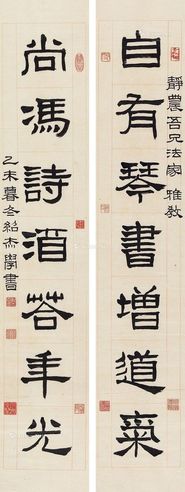 自有琴書增道氣
靜農吾兄法家 雅教
尚馮詩酒荅年光
乙未暮冬紹杰學書